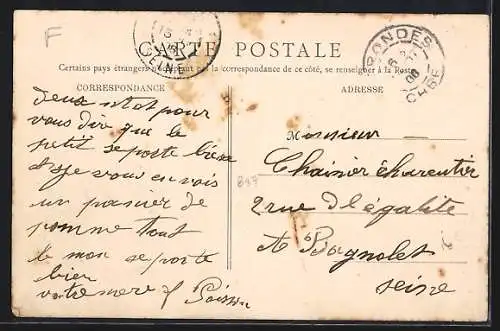 F
CARTE POSTALE
Certains pays étrangers n'acceptant pas la correspondance de ce côté, se renseigner à la Poste
CORRESPONDANCE
ADRESSE
deux mot pour
vous dire que le
petit se porte bien
et je vous en vois
un panier de
pomme tout
le mon se porte
bien
votre mere f Poisson
Monsieur
Chainier écharentier
2 rue d légalite
A Bagnolet
seine
SEINE
RONDES
06
CHER